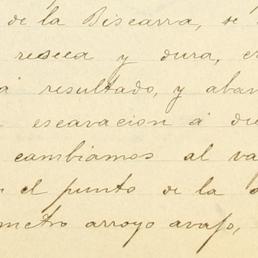 de la Biscarra, se
reseca y dura, e
resultado, y aban
escavacion á di
cambiamos al va
el punto de la
metro arroyo avajo,